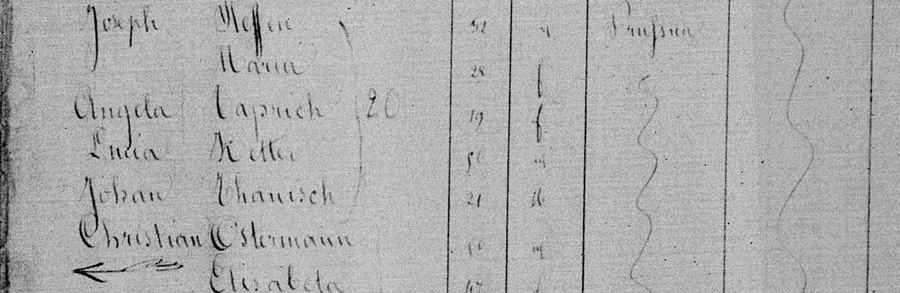 Joseph Steffen 32 m Preussen
Maria 28 f
Angela Caprich 20 19 f
Lucia Ketter m
Johan Thanisch 21 m
Christian Ostermann m
Elisabeta 47